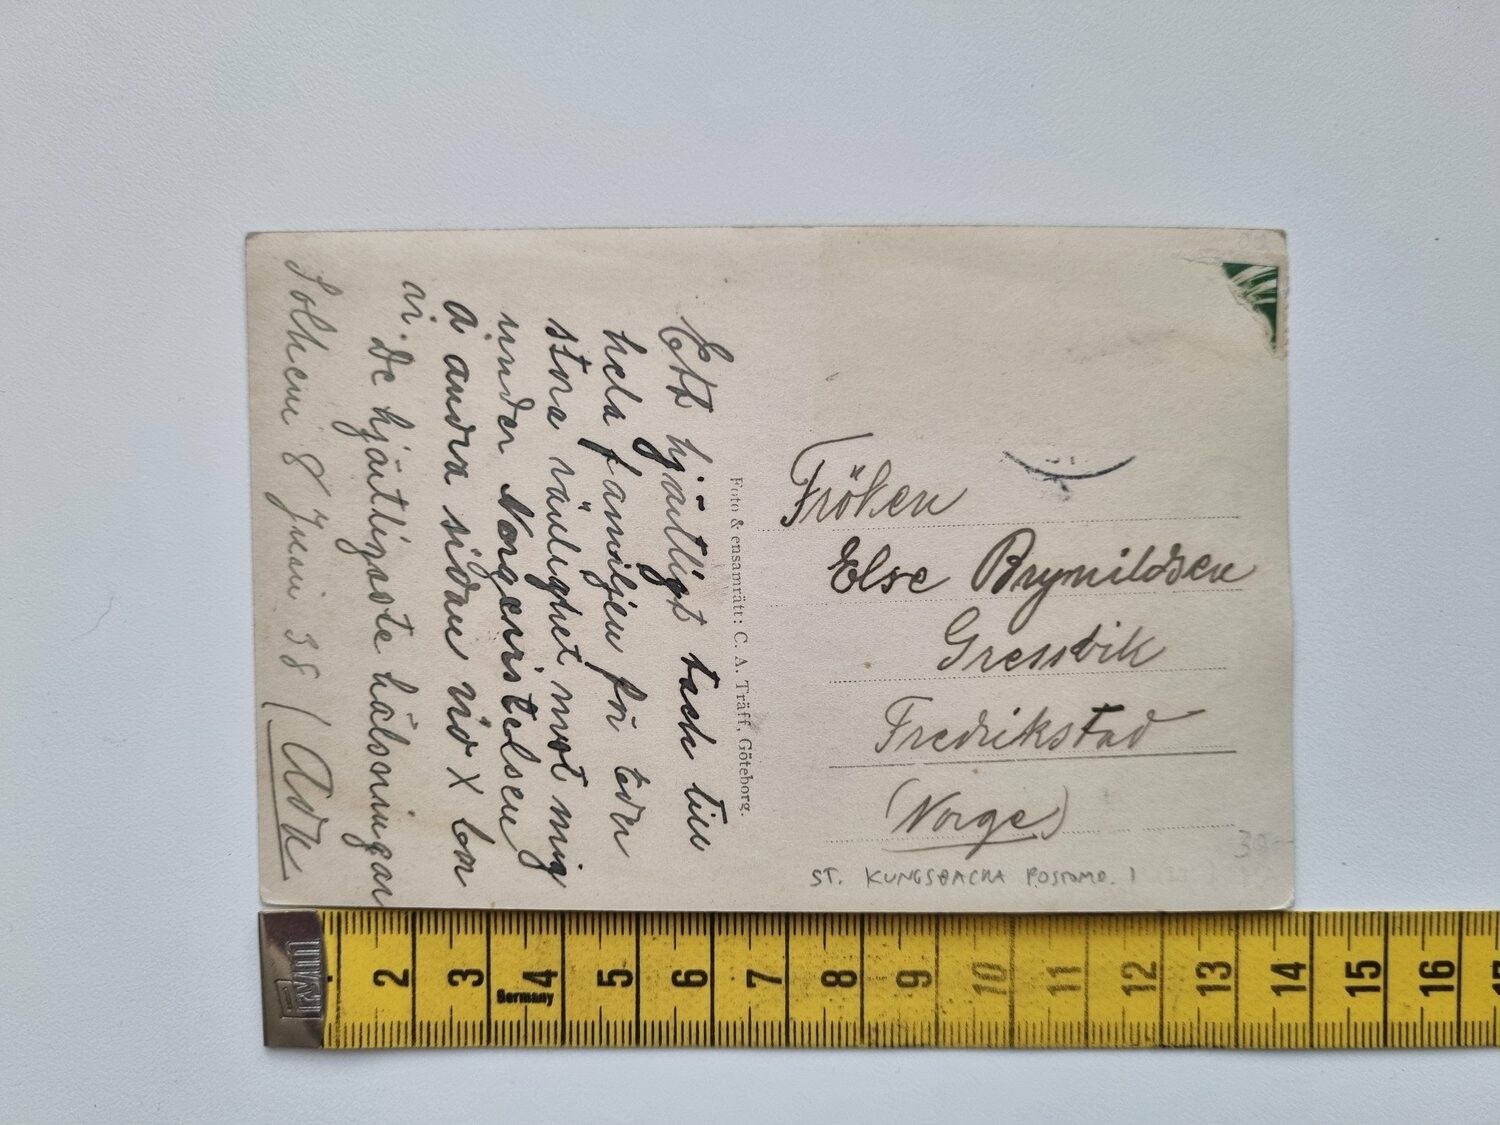 Ett hjärtligt tack till
hela familjen för eder
stora vänlighet mot mig
under Norgevistelsen
å andra sidan vid X
vi. De hjärtligaste hälsningar
Solhem 8 Juni 38
Foto & ensamrätt: C. A. Träff, Göteborg.
Fröken
Else Brynildsen
Gressvik
Fredrikstad
(Norge)
ST. KUNGSBACKA POSTOMR. 1
30-
2
3
4
Germany
5
6
7
8
9
10
11
12
13
14
15
16